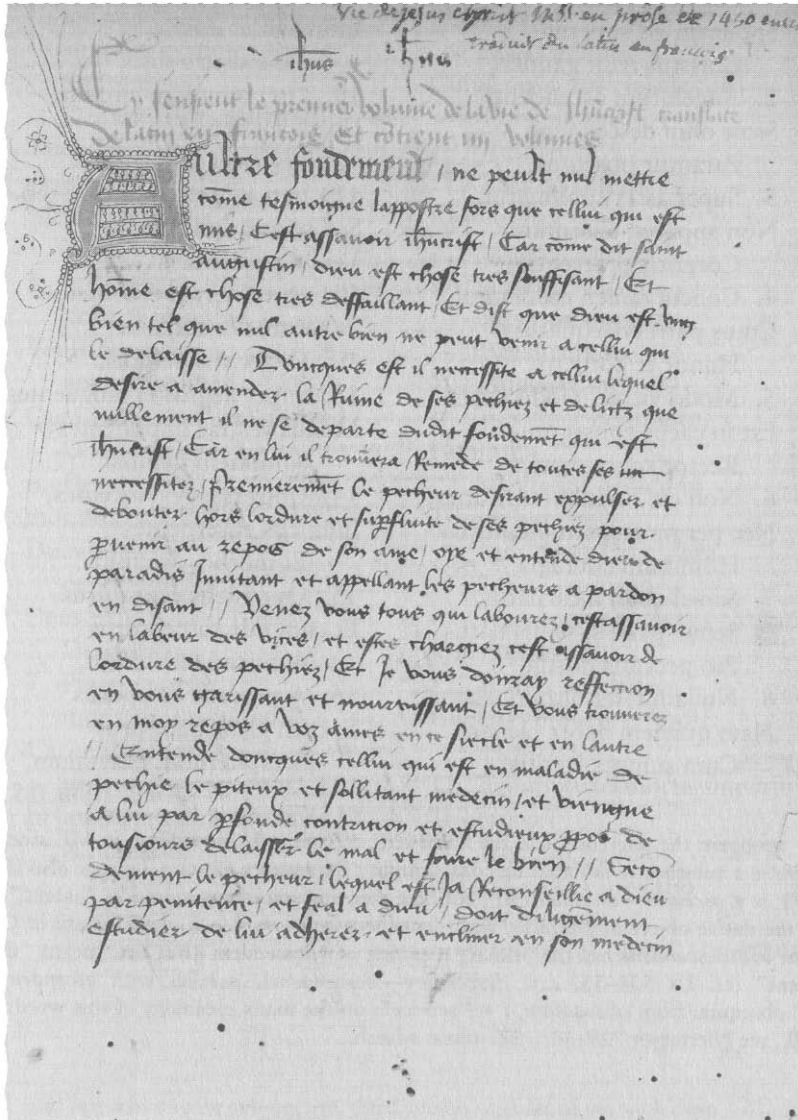 Vie de Jesus Christ MSS. en prose de 1460 envi
traduit du latin en françois
ihus ihus
Cy sensuit le premier volume de la vie de Jhucrist translate
de latin en francois Et cōtient iiii volumes
Aultre fondement / ne peult nul mettre
cōme tesmoigne lappostre fors que cellui qui est
mis / Cest assavoir ihūcrist / Car come dit saint
augustin / dieu est chose tres souffisant / Et
hōme est chose tres deffaillant Et dist que dieu est ung
bien tel que nul autre bien ne peut venir a cellui qui
le delaisse // Doncques est il necessite a cellui lequel
desire a amender la Ruine de ses pechiez et delictz que
nullement il ne se departe dudit fondemēt qui est
ihūcrist / Car en lui il trouvera Remede de toutes ses
neccessitez / Premieremēt le pecheur desirant expulser et
debouter hors lordure et supfluite de ses pechiez pour
pvenir au repos de son ame / oye et entende dieu de
paradis Invitant et appellant les pecheurs a pardon
en disant // Venez vous tous qui labourez / cestassavoir
en labeur des vices / et estes chargiez cest assavoir de
lordure des pechiez / Et Je vous donray reffection
en vous garissant et nourrissant / Et vous trouverez
en moy repos a voz ames en ce siecle et en lautre
// Entende doncques cellui qui est en maladie de
pechie le piteux et sollitant medecin / et viengne
a lui par pfonde contricion et estudieux ppos de
tousiours delaisser le mal et faire le bien // Secō
dement le pecheur / lequel est Ja Reconseillie a dieu
par penitence / et feal a dieu / doit diligement
estudier de lui adherer et encliner en son medecin